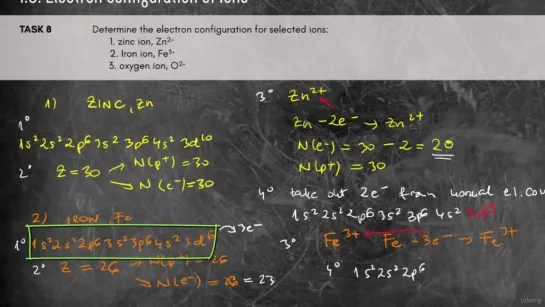 1.8. Electron configuration of ions
TASK 8
Determine the electron configuration for selected ions:
1. zinc ion, Zn²⁺
2. Iron ion, Fe³⁺
3. oxygen ion, O²⁻
1) ZINC, Zn
1° 1s² 2s² 2p⁶ 3s² 3p⁶ 4s² 3d¹⁰
2° Z = 30 → N(p⁺) = 30
→ N(e⁻) = 30
3° Zn²⁺
Zn - 2e⁻ → Zn²⁺
N(e⁻) = 30 - 2 = 28
N(p⁺) = 30
4° take out 2e⁻ from normal el. cou
1s² 2s² 2p⁶ 3s² 3p⁶ 4s²
2) IRON, Fe
1° 1s² 2s² 2p⁶ 3s² 3p⁶ 4s² 3d⁶ → 3e⁻
2° Z = 26 → N(p⁺) = 26
→ N(e⁻) = 26 = 23
3° Fe³⁺ Fe - 3e⁻ → Fe³⁺
4° 1s² 2s² 2p⁶
udemy